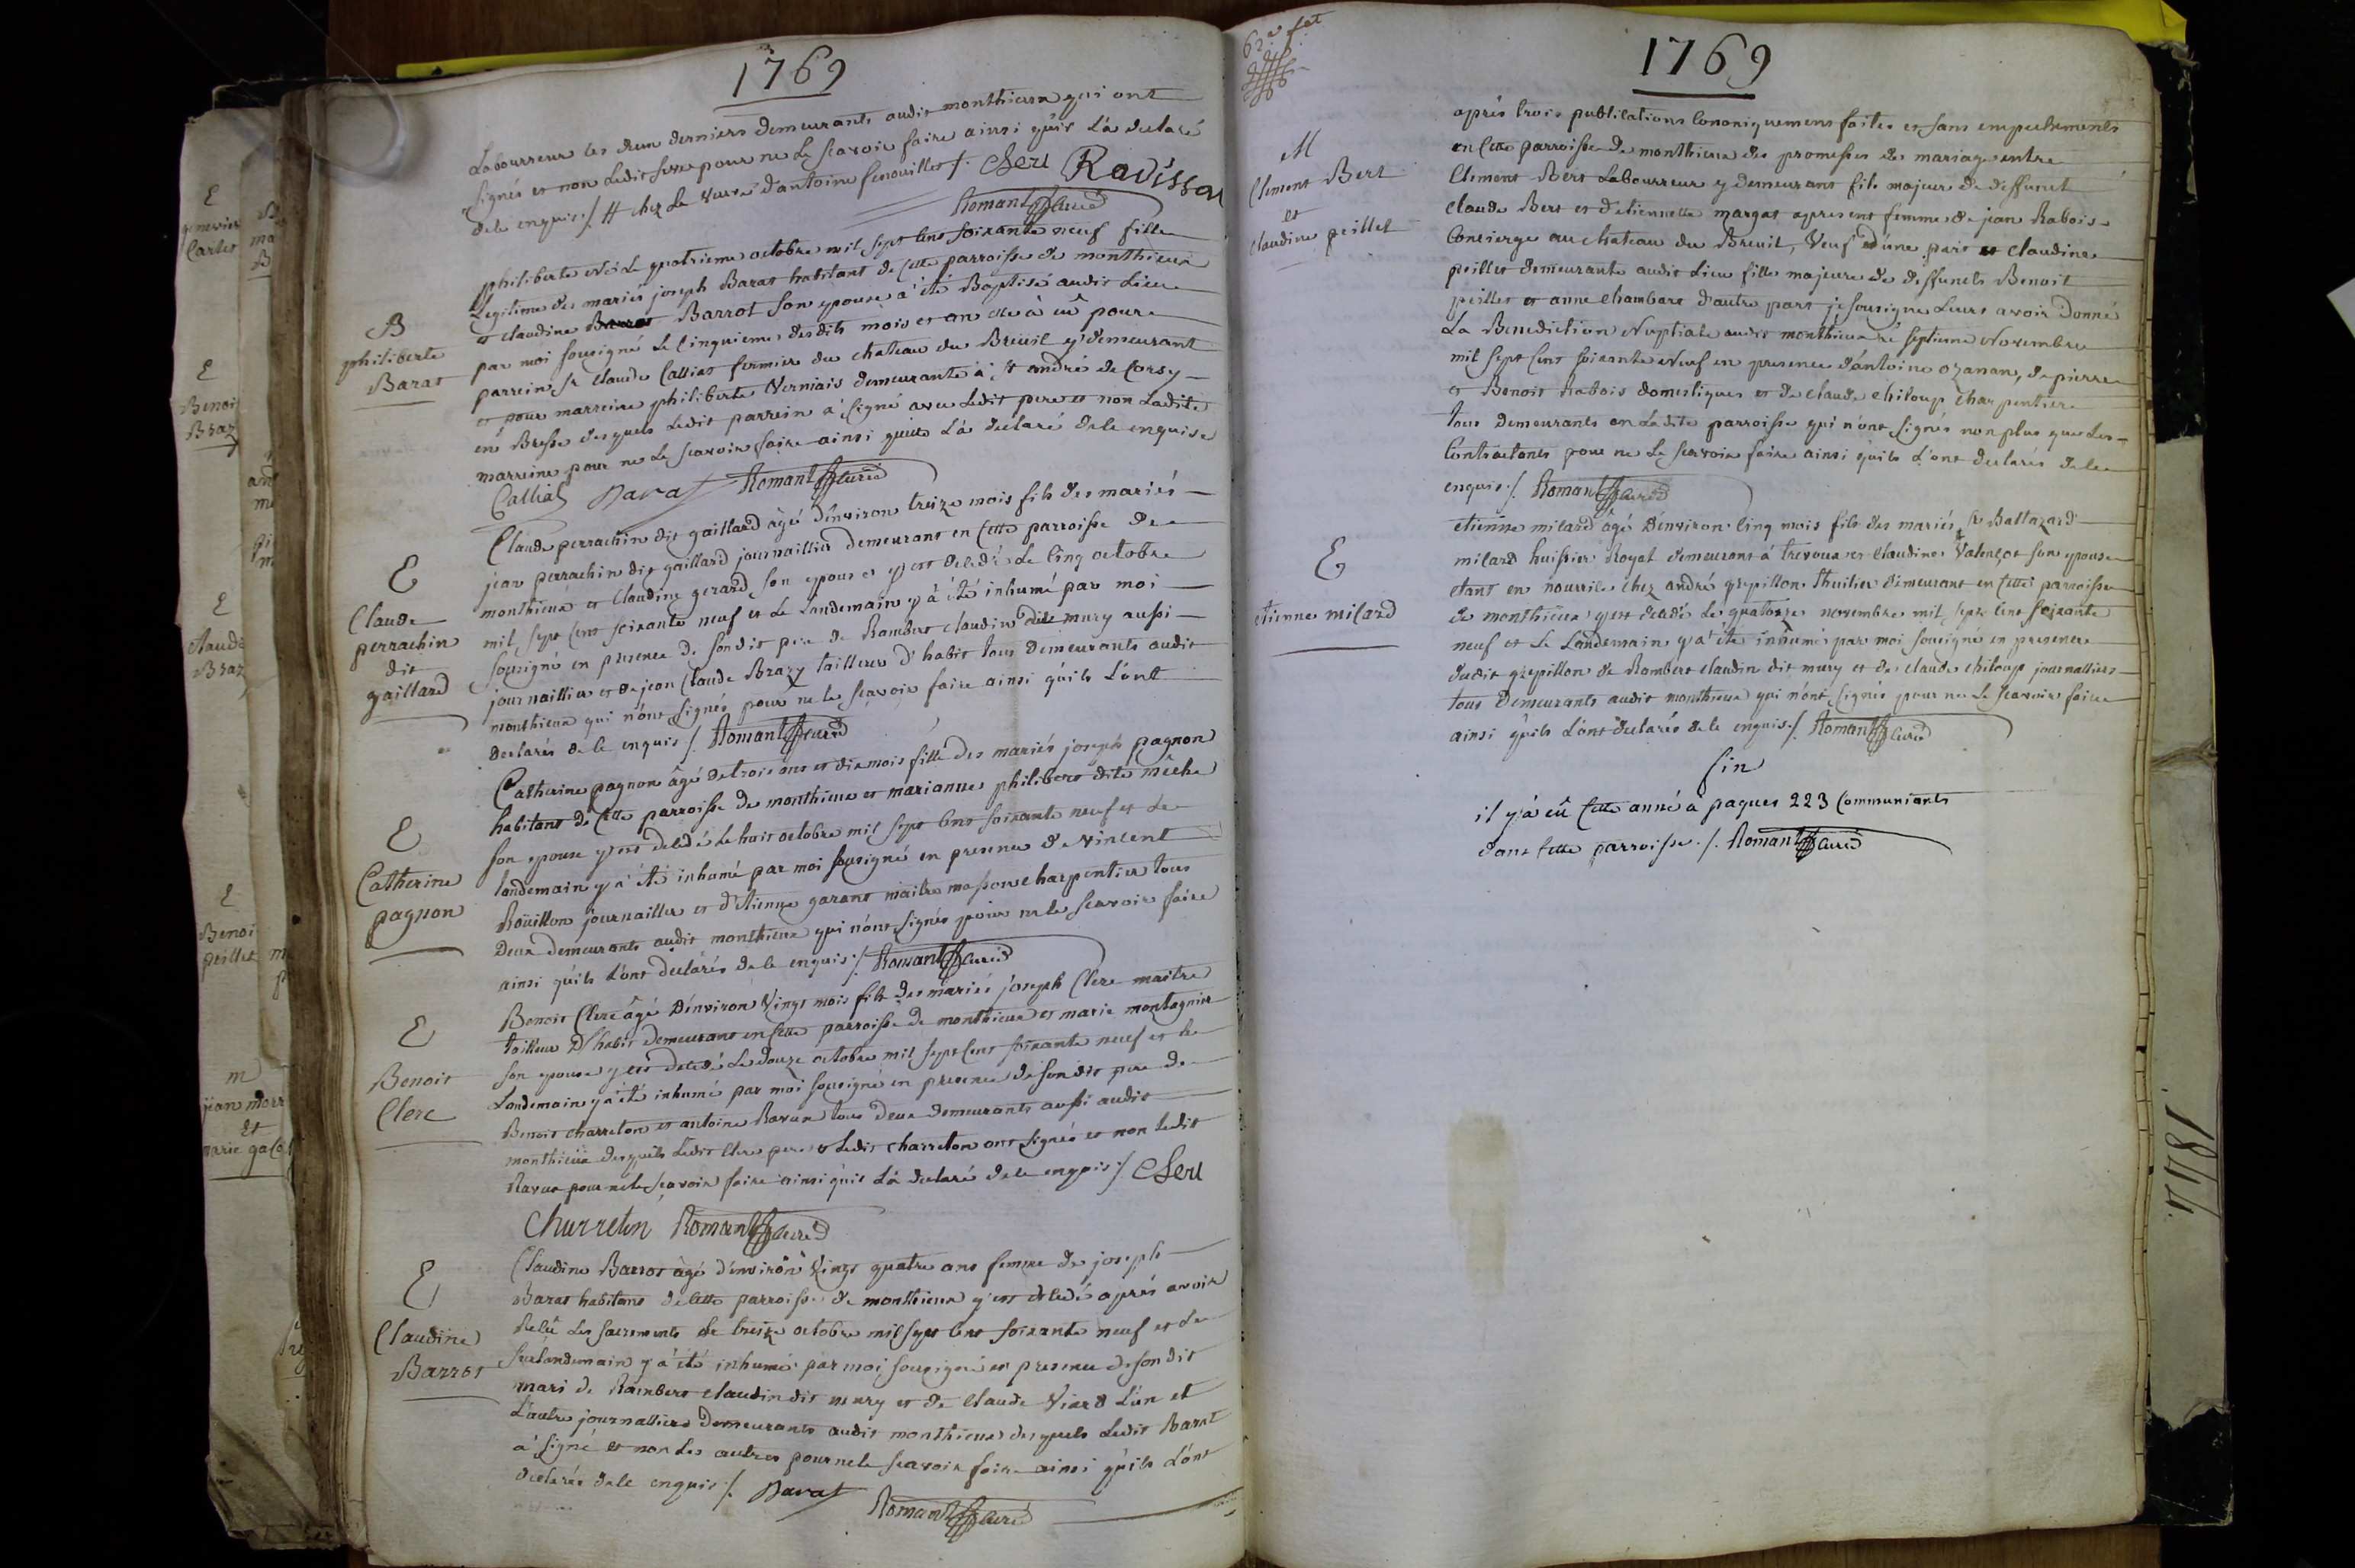 1769
Labourreur les deux derniers demeurants audit monthieux qui ont
signés et non ledit serve pour ne le scavoir faire ainsi qu'il l'a declaré
de le enquis ./. # chez la veuve d'antoine fenouillet ./. Clerc Radisson
Romant Curé
B
philiberte
Barat
philiberte née le quatrieme octobre mil sept cens soixante neuf fille
Legitime des mariés joseph Barat habitant de cette parroisse de monthieux
et claudine Barrot son epouse a été Baptisé audit Lieu
par moi sousigné le cinquieme desdits mois et an elle à eû pour
parrein sr claude Callias fermier du chateau du Breüil y demeurant
et pour marreine philiberte Verniais demeurante à st andré de Corsy
en Bresse desquels ledit parrein à signé avec ledit pere et non Ladite
marreine pour ne le scavoir faire ainsi quelle l'à declaré de le enquise
Callias Barat Romant Curé
E
Claude
perrachin
dit
gaillard
Claude perrachin dit gaillard âgé d'environ treize mois fils des mariés
jean perrachin dit gaillard journaillier demeurant en cette parroisse de
monthieux et claudine gerard son epouse y est decedé le cinq octobre
mil sept cens soixante neuf et le landemain y à été inhumé par moi
sousigné en presence de sondit pere de Rambert claudin dit mury aussi
journaillier et de jean Claude Brazy tailleur d'habit tous demeurants audit
monthieux qui n'ont signés pour ne le sçavoir faire ainsi qu'ils l'ont
declarés de le enquis ./. Romant Curé
E
Catherine
pagnon
Catherine pagnon âgé de trois ans et dix mois fille des mariés joseph pagnon
habitant de cette parroisse de monthieux et marianne philibert dite mêche
son epouse y est decedé le huit octobre mil sept cens soixante neuf et le
landemain y a été inhumé par moi sousigné en presence de vincent
Roüillon journaillier et d'etienne garant maitre masson charpentier tous
Deux demeurants audit monthieux qui n'ont signés pour ne le scavoir faire
ainsi qu'ils l'ont declarés de le enquis ./. Romant Curé
E
Benoit
Clerc
Benoit Clerc âgé d'environ Vingt mois fils des mariés joseph Clerc maitre
tailleur D'habit demeurant en cette parroisse de monthieux et marie montagnier
son epouse y est decedé le douze octobre mil sept cens soixante neuf et le
Landemain y a été inhumé par moi sousigné en presence de son dit pere de
Benoit charreton et antoine Ravax tous deux demeurants aussi audit
monthieux desquels ledit Clerc pere et ledit charreton ont signés et non ledit
Ravax pour ne le scavoir faire ainsi qu'il l'à declaré de le enquis ./. Clerc
Churreton Romant Curé
E
Claudine
Barrot
Claudine Barrot âgé d'environ Vingt quatre ans femme de joseph
Barat habitant de cette parroisse de monthieux y est decedé aprés avoir
Recû les sacrements le treize octobre mil sept cens soixante neuf et le
surlandemain y a été inhumé par moi sousigné en presence de son dit
mari de Rambert claudin dit mury et de claude Viard l'un et
L'autre journalliers demeurants audit monthieux desquels ledit Barat
a signé et non les autres pour ne le scavoir faire ainsi qu'ils l'ont
declarés de le enquis ./. Barat
Romant Curé
1769
M
Clement Bert
et
claudine peillet
aprés trois publications Canoniquement faites et sans empechements
en cette parroisse de monthieux des promesses de mariage entre
Clement Bert Labourreur y demeurant fils majeur de deffunct
claude Bert et d'etiennette margat apresent femme de jean Rabois
Concierge au chateau du Breuil, Veuf d'une part et claudine
peillet demeurante audit Lieu fille majeure de deffuncts Benoit
peillet et anne chambare d'autre part je sousigné Leurs avoir donné
La Benediction Nuptiale audit monthieux le septieme Novembre
mil sept cens soixante Neuf en presence d'antoine ozanan, de pierre
et Benoit Rabois domestiques et de claude chiloup charpentier
tous demeurants en Ladite parroisse qui n'ont signés non plus que Les
Contractants pour ne le scavoir faire ainsi qu'ils l'ont declarés de le
enquis ./. Romant Curé
E
etienne milard
etienne milard âgé d'environ cinq mois fils des mariés sr Baltazard
milard huissier Royal demeurant à trevoux et claudine Valençot son epouse
etant en nourrice chez andré grepillon thuilier demeurant en cette parroisse
de monthieux y est decedé le quatorze novembre mil sept cens soixante
neuf et le Landemain y a été inhumé par moi sousigné en presence
dudit grepillon de Rambert claudin dit mury et de claude chiloup journalliers
tous demeurants audit monthieux qui n'ont signés pour ne le scavoir faire
ainsi qu'ils l'ont declarés de le enquis ./. Romant Curé
fin
il y'à eû cette anné à paques 223 Communiants
dans cette parroisse ./. Romant Curé